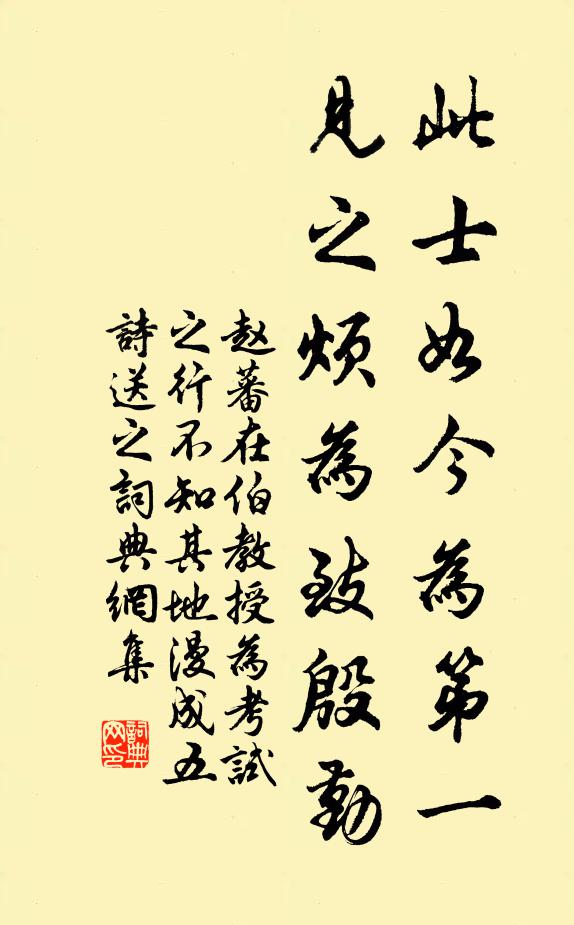 此士如今為第一
見之煩為致殷勤
赵蕃在伯教授為考試
之行不知其地漫成五
詩送之詞典網集
詞典網印